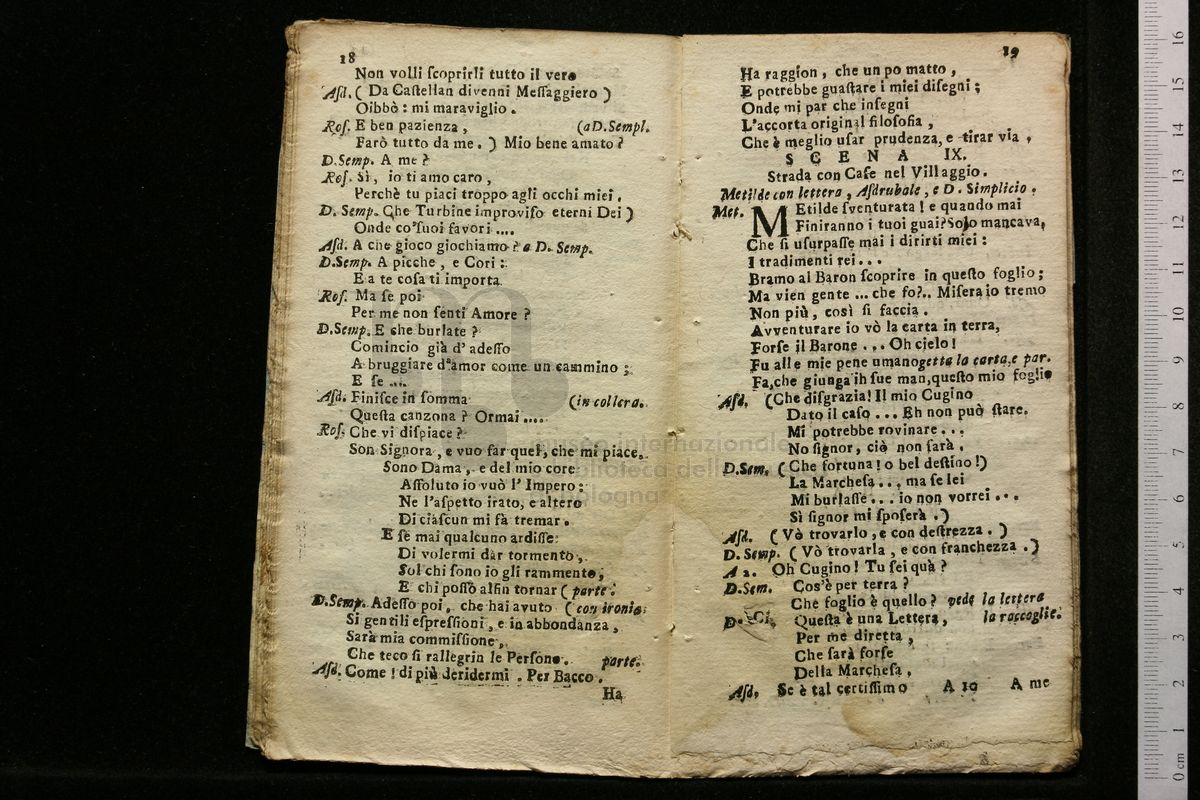 18
Non volli ſcoprirli tutto il vero
Aſd. ( Da Caſtellan divenni Meſſaggiero )
Oibbò : mi maraviglio .
Roſ. E ben pazienza , (a D. Sempl.
Farò tutto da me . ) Mio bene amato ?
D.Semp. A me ?
Roſ. Sì , io ti amo caro ,
Perchè tu piaci troppo agli occhi miei .
D. Semp. Che Turbine improviſo eterni Dei )
Onde co'ſuoi favori ....
Aſd. A che gioco giochiamo ? a D. Semp.
D.Semp. A picche , e Cori :
E a te coſa ti importa.
Roſ. Ma ſe poi
Per me non ſenti Amore ?
D.Semp. E che burlate ?
Comincio già d' adeſſo
A bruggiare d'amor come un cammino ;
E ſe ....
Aſd. Finiſce in ſomma (in collera.
Queſta canzona ? Ormai ....
Roſ. Che vi diſpiace ?
Son Signora , e vuo far quel , che mi piace.
Sono Dama , e del mio core
Aſſoluto io vuò l' Impero ;
Ne l'aſpetto irato, e altero
Di ciaſcun mi fà tremar .
E ſe mai qualcuno ardiſſe
Di volermi dar tormento ,
Sol chi ſono io gli rammento ;
E chi poſſo alfin tornar ( parte .
D.Semp. Adeſſo poi , che hai avuto ( con ironia.
Si gentili eſpreſſioni , e in abbondanza ,
Sarà mia commiſſione ,
Che teco ſi rallegrin le Perſone . parte.
Aſd. Come ! di più deridermi . Per Bacco .
Ha
19
Ha raggion , che un po matto ,
E potrebbe guaſtare i miei diſegni ;
Onde mi par che inſegni
L'accorta original filoſofia ,
Che è meglio uſar prudenza, e tirar via .
S C E N A IX.
Strada con Caſe nel Villaggio.
Metilde con lettera , Aſdrubale , e D. Simplicio .
Met. METilde ſventurata ! e quando mai
Finiranno i tuoi guai? Solo mancava,
Che ſi uſurpaſſe mai i dirirti miei :
I tradimenti rei . . .
Bramo al Baron ſcoprire in queſto foglio ;
Ma vien gente ... che fo?.. Miſera io tremo
Non più , così ſi faccia .
Avventurare io vò la carta in terra,
Forſe il Barone . . . Oh cielo !
Fu alle mie pene umano getta la carta, e par.
Fa, che giunga ih ſue man, queſto mio foglio
Aſd. (Che diſgrazia! Il mio Cugino
Dato il caſo . . . Eh non può ſtare.
Mi potrebbe rovinare . . .
No ſignor, ciò non ſarà .
D.Sem. ( Che fortuna ! o bel deſtino !)
La Marcheſa . . . ma ſe lei
Mi burlaſſe . . . io non vorrei . . .
Sì ſignor mi ſpoſerà .)
Aſd. ( Vò trovarlo , e con deſtrezza . )
D. Semp. ( Vò trovarla , e con franchezza .)
A 2. Oh Cugino ! Tu ſei quà ?
D.Sem. Cos'è per terra ?
Che foglio è quello ? vede la lettera
D. Queſta è una Lettera, la raccoglie.
Per me diretta ,
Che ſarà forſe
Della Marcheſa ,
Aſd. Se è tal certiſſimo A 10 A me
museo internazionale
biblioteca della
bologna